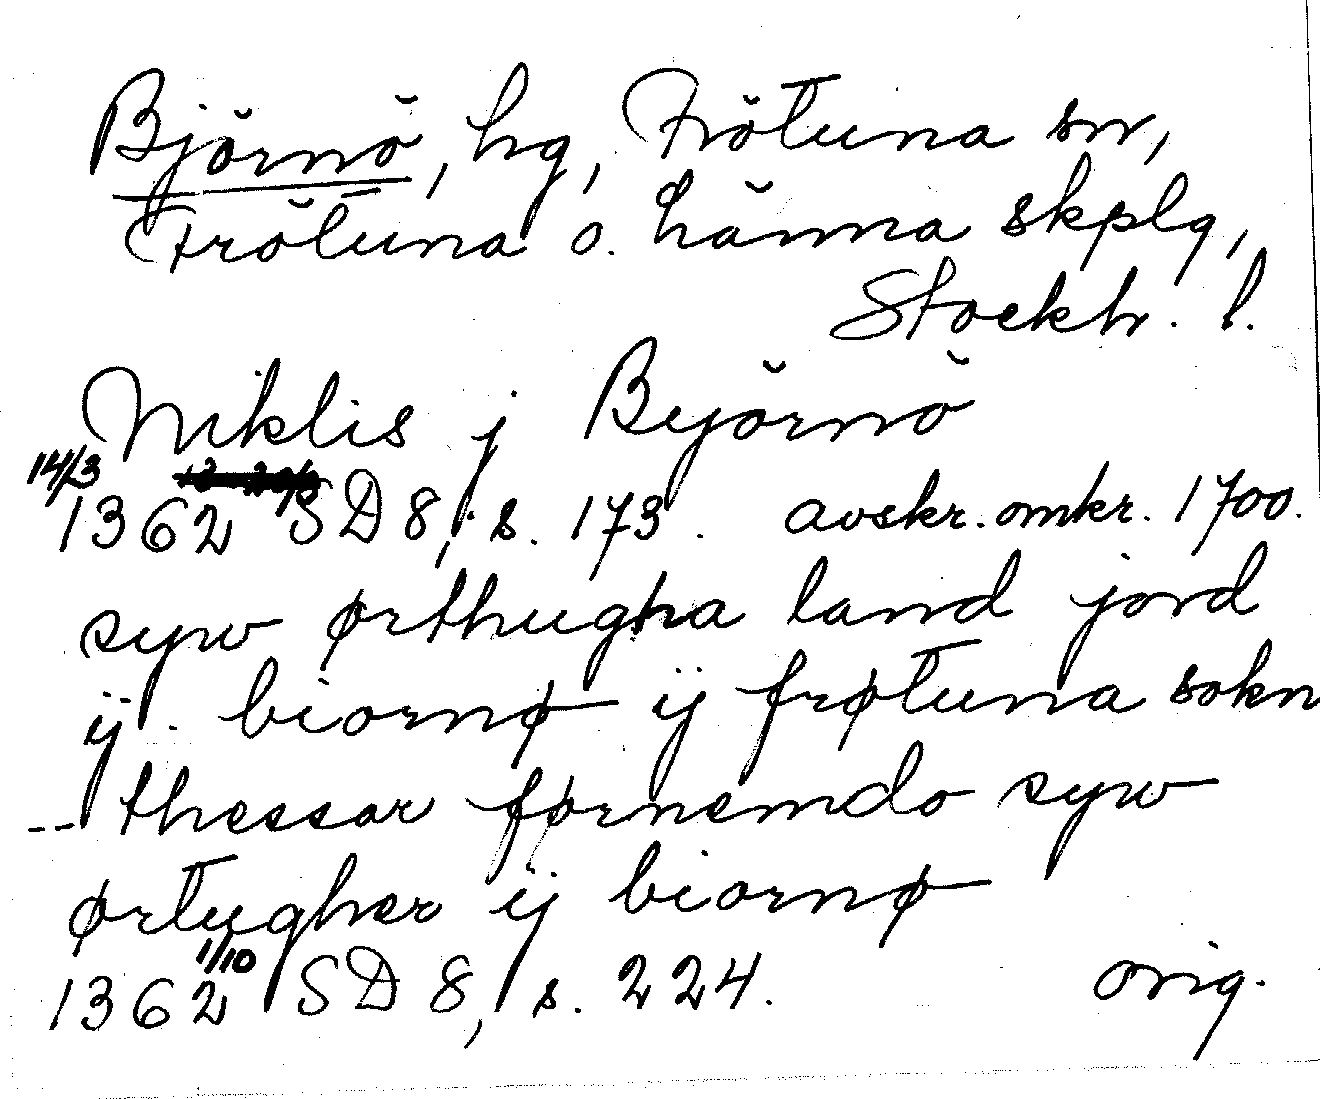 Björnö, hg, Frötuna sn,
Frötuna o. Länna skplg,
Stockh. l.
Niklis j Byörnö
14/3
1362 SD 8, s. 173. avskr. omkr. 1700.
syw ørthugha land jord
ij. biornø ij frøtuna sokn
-- thessar førnemdo syw
ørtugher ij biornø
1/10
1362 SD 8, s. 224. orig.